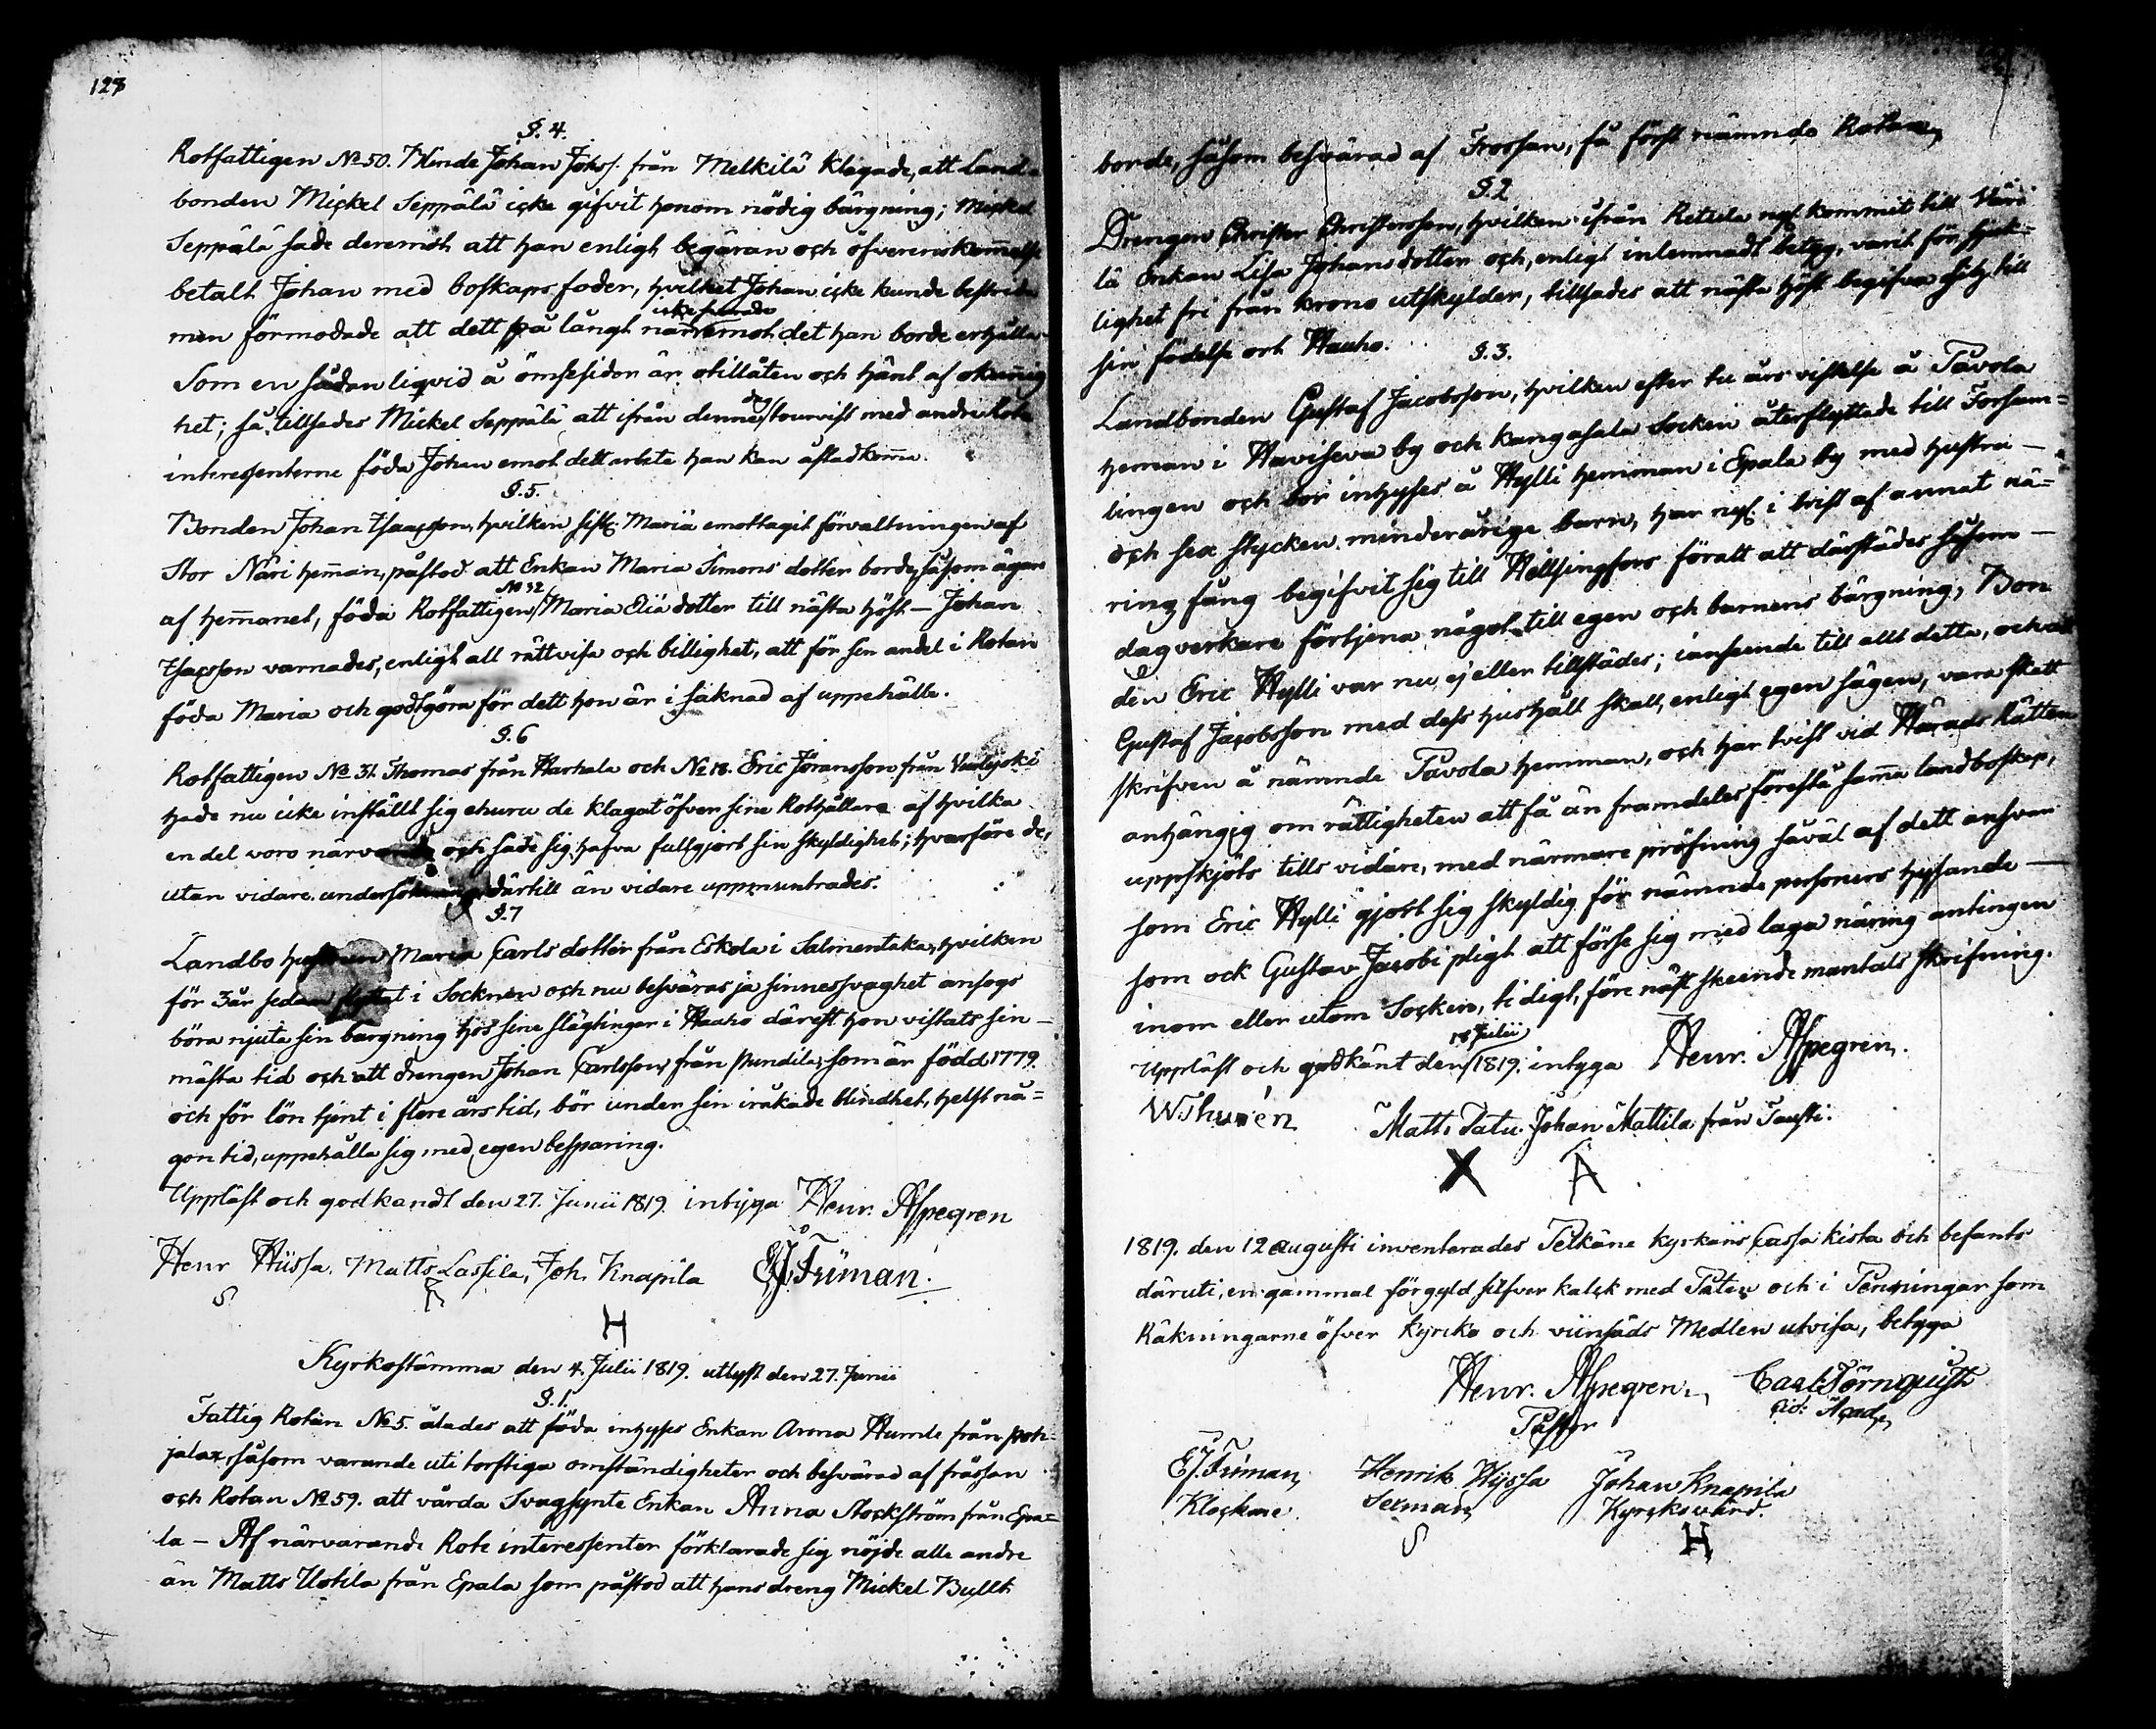 128
§. 4.
Rotfattigen No 50. Blinde Johan Johss. från Melkilä klagade, att Land-
bonden Mickel Seppälä icke gifvit honom nödig bärgning; Mickel
Seppälä sade deremot att han enligt begäran och öfverenskommelse
betalt Johan med boskaps foder, hvilket Johan icke kunde bestrida
icke svarade
men förmodade att dett på långt när emot det han borde erhålla.
Som en sådan liqvid å ömsesidor är otillåten och hänt af okunnig
het; så tillsades Mickel Seppälä att ifrån denne dag tourvist med andre Rote
interessenterne föda Johan emot dett arbete han kan åstadkomma.
§. 5.
Bonden Johan Isacsson, hvilken sistl. Mariä emottagit förvaltningen af
Stor Näri hemman, påstod att Enkan Maria Simons dotter borde, såsom ägare
No 32
af hemmanet, föda Rotfattigen Maria Eliä dotter till nästa höst – Johan
Isacsson varnades, enligt all rättvisa och billighet, att för sin andel i Rotan
föda Maria och godtgöra för dett hon är i saknad af uppehälle.
§. 6
Rotfattigen No 31. Thomas från Harhala och No 18. Eric Göransson från
hade nu icke inställt sig ehuru de klagat öfver sine Rothållare af hvilka
en del voro närvarande och sade sig hafva fullgjort sin skyldighet; hvarföre de,
utan vidare undersökning därtill än vidare uppmuntrades.
§. 7
Landbo hustrun Maria Carls dotter från Eskola i Salmentaka, hvilken
för 3 år sedan flyttat i Socknen och nu besväras ja sinnessvaghet ansågs
böra njuta sin bärgning hos sine slägtingar i Hauho därest hon vistats sin –
mästa tid och att drengen Johan Carlsson från Pundila, som är född 1779.
och för lön tjent i flere års tid, bör under sin iråkade blindhet, helst nå=
gon tid, uppehålla sig med egen besparing.
Uppläst och godkändt den 27. Junii 1819. intyga Henr. Aspegren
Henr Hiissa. Matts Lassila, Joh. Knapila EJ. Friman.
S
H
Kyrkostämma den 4. Julii 1819. utlyst den 27. Junii
§. 1.
Fattig Rotan No 5. ålades att föda inhyses Enkan Anna Humle från Poh=
jalax, såsom varande uti torftiga omständigheter och besvärad af frossan
och Rotan No 59. att vårda Svagsynte Enkan Anna Stockström från Epa=
la – Af närvarande Rote interessenter förklarade sig nöjde alle andre
än Matts Uotila från Epala som påstod att hans dreng Mickel Bullt
borde, såsom besvärad af Frossan, få först nämnde Rotan,
§. 2
Drengen Christer Christersson, hvilken ifrån Retula nyl. kommit till
lä Enkan Lisa Johans dotter och, enligt inlemnadt betyg, varit för sjuk=
lighet fri från krono utskylder, tillsades att nästa höst begifva sig till
sin födelse ort Hauho.
§. 3.
Landbonden Gustaf Jacobsson, hvilken efter tu års vistelse å Tavola
heman i Haviseva by och kangasala Socken återflyttade till Försam=
lingen och bor inhyses å Hylli hemman i Epala by med hustru –
och sex stycken minderårige barn, har nyl. i brist af annat nä=
ring fång begifvit sig till Hellsingfors föratt att därstädes såsom –
dagverkare förtjena något till egen och barnens bärgning, Bon
den Eric Hylli var nu ej eller tillstädes; i anseende till allt detta, och att
Gustaf Jacobsson med dess hushåll skall, enligt egen sägen, vara skatt
skrifven å nämnde Tavola hemman, och har tvist vid Härads Rätten
anhängig om rättigheten att få än framdeles förestå samma landboskap,
uppskjöts tills vidare, med närmare pröfning såväl af dett ansvar
som Eric Hylli gjort sig skyldig för nämnde personers hysande –
som ock Gustav Jacobi pligt att förse sig med laga näring antingen
inom eller utom Socken, tidigt, före näst skeende mantals skrifning.
18 Julii
Uppläst och godkänt den 1819. intyga Henr. Aspegren.
Matts Tatu. Johan Mattila från Tausti.
X
1819. den 12 Augusti inventerades Pelkäne kyrkans Cassa kista och befants
däruti, en gammal förgyld silfver kalck med Paten och i Penningar som
Räkningarne öfver kyrcko och viinsäds Medlen utvisa, betyga
Henr. Aspegren, Carl Törnquist
Pastor
EJ. Friman, Henrik Hyssa Johan Knapila
Klockare Sexman, Kyrckovärd.
S H